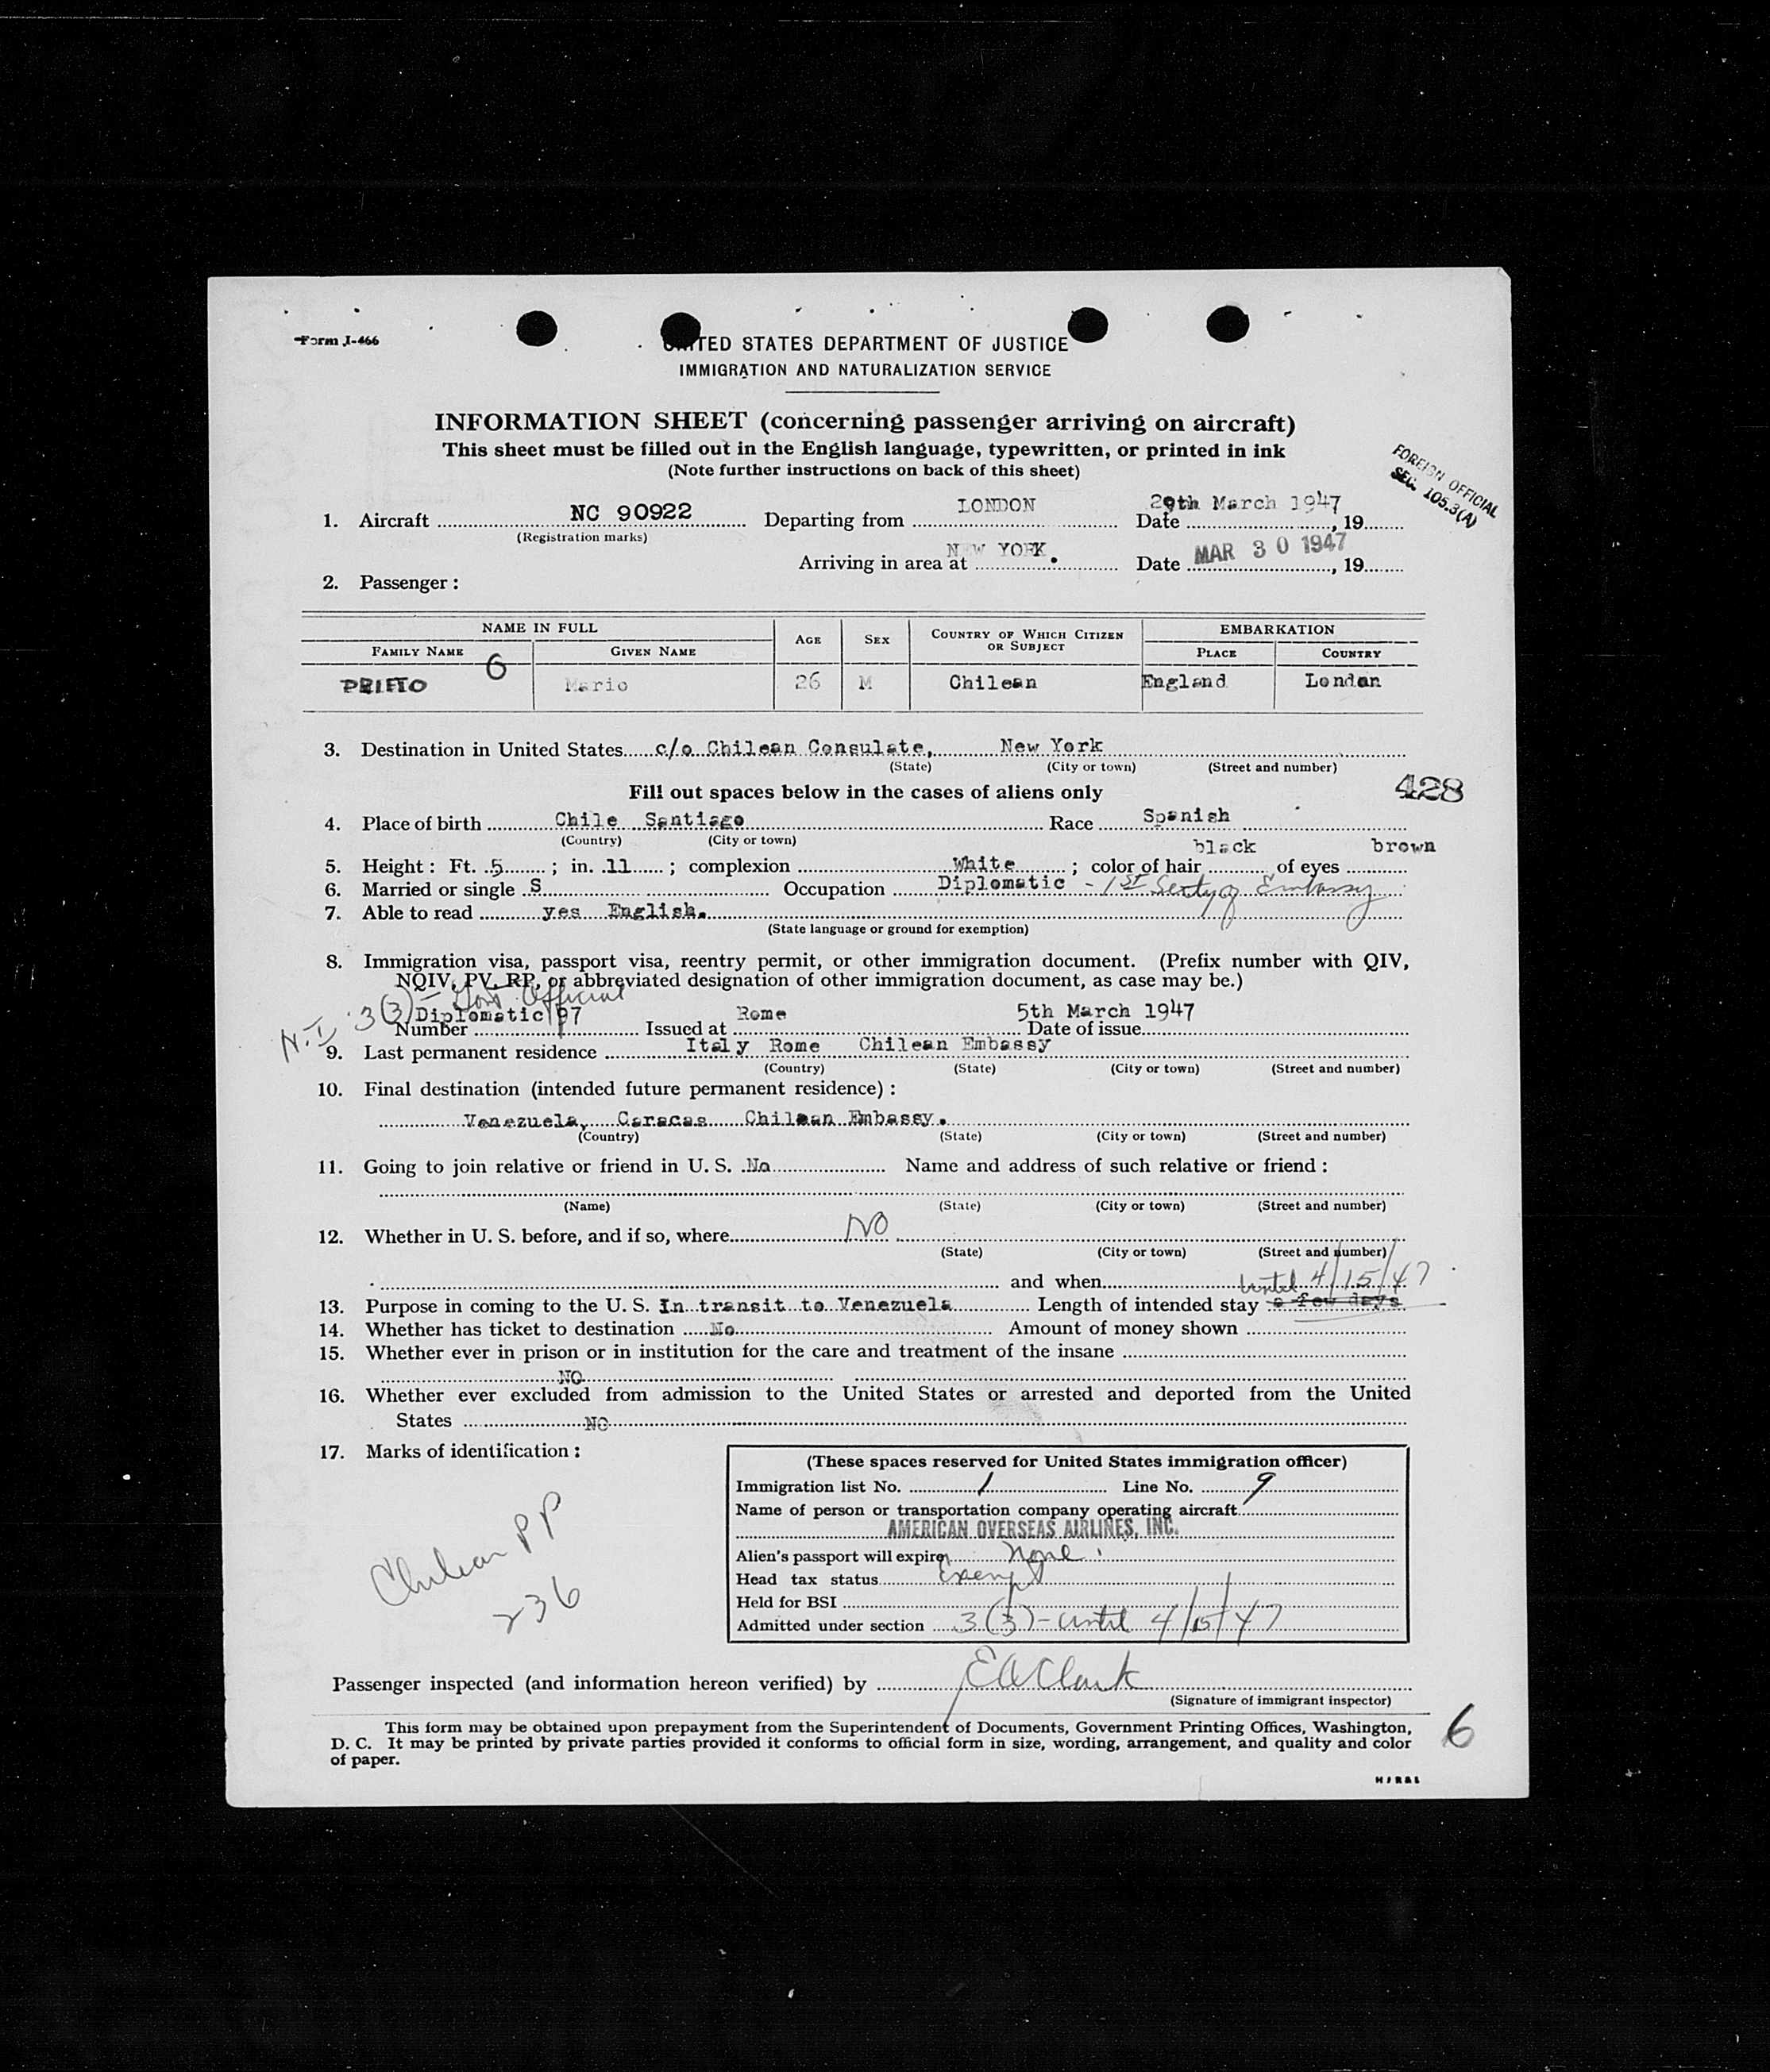 Form I-466
UNITED STATES DEPARTMENT OF JUSTICE
IMMIGRATION AND NATURALIZATION SERVICE
INFORMATION SHEET (concerning passenger arriving on aircraft)
This sheet must be filled out in the English language, typewritten, or printed in ink
(Note further instructions on back of this sheet)
FOREIGN OFFICIAL
SEC. 105.3(A)
1. Aircraft NC 90922 Departing from LONDON Date 29th March 1947, 19
(Registration marks)
Arriving in area at NEW YORK. Date MAR 30 1947, 19
2. Passenger :
NAME IN FULL AGE SEX COUNTRY OF WHICH CITIZEN OR SUBJECT EMBARKATION
FAMILY NAME GIVEN NAME PLACE COUNTRY
6
PRIETO Mario 26 M Chilean England London
3. Destination in United States c/o Chilean Consulate, New York
(State) (City or town) (Street and number)
Fill out spaces below in the cases of aliens only 428
4. Place of birth Chile Santiago Race Spanish
(Country) (City or town)
5. Height : Ft. 5 ; in. 11 ; complexion White ; color of hair black of eyes brown
6. Married or single S Occupation Diplomatic - 1st Secty of Embassy
7. Able to read yes English.
(State language or ground for exemption)
8. Immigration visa, passport visa, reentry permit, or other immigration document. (Prefix number with QIV,
NQIV, PV, RP, or abbreviated designation of other immigration document, as case may be.)
N.I. 3(3) - Gov. Official
Number Diplomatic 97 Issued at Rome Date of issue 5th March 1947
9. Last permanent residence Italy Rome Chilean Embassy
(Country) (State) (City or town) (Street and number)
10. Final destination (intended future permanent residence) :
Venezuela, Caracas Chilean Embassy.
(Country) (State) (City or town) (Street and number)
11. Going to join relative or friend in U. S. No Name and address of such relative or friend :
(Name) (State) (City or town) (Street and number)
12. Whether in U. S. before, and if so, where NO
(State) (City or town) (Street and number)
and when
until 4/15/47
13. Purpose in coming to the U. S. In transit to Venezuela Length of intended stay a few days
14. Whether has ticket to destination No Amount of money shown
15. Whether ever in prison or in institution for the care and treatment of the insane
NO
16. Whether ever excluded from admission to the United States or arrested and deported from the United
States NO
17. Marks of identification :
Chilean PP
236
(These spaces reserved for United States immigration officer)
Immigration list No. 1 Line No. 9
Name of person or transportation company operating aircraft
AMERICAN OVERSEAS AIRLINES, INC.
Alien's passport will expire None.
Head tax status Exempt
Held for BSI
Admitted under section 3(3) - until 4/15/47
Passenger inspected (and information hereon verified) by E A Clark
(Signature of immigrant inspector)
This form may be obtained upon prepayment from the Superintendent of Documents, Government Printing Offices, Washington,
D. C. It may be printed by private parties provided it conforms to official form in size, wording, arrangement, and quality and color
of paper.
6